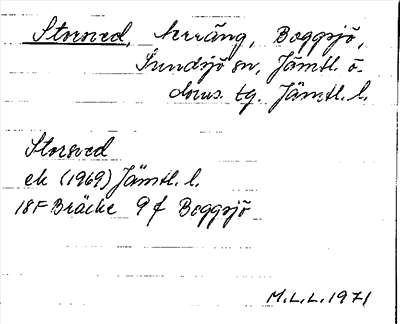 Storsved, terräng, Boggsjö,
Sundsjö sn, Jämtl. ö.
doms. tg. Jämtl. l.
Storsved
ek (1969) Jämtl. l.
18F Bräcke 9f Boggsjö
M.L.L. 1971